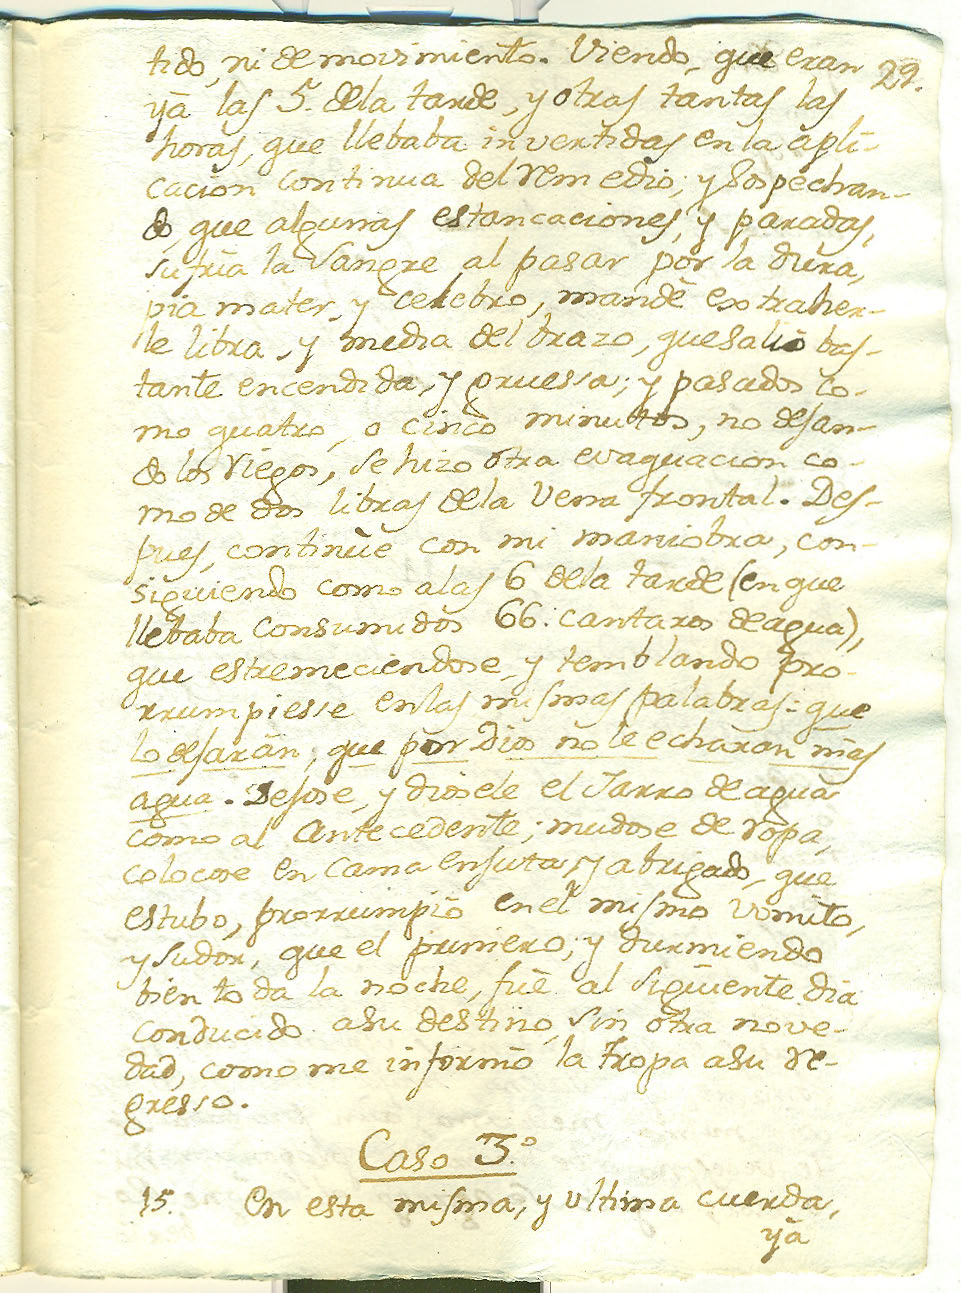 29.
tido, ni de movimiento. Viendo, que eran
yà las 5. dela tarde, y otras tantas las
horas, que llebaba invertidas en la apli-
cacion continua del remedio; y sospechan-
do, que algunas estancaciones, y paradas,
sufria la sangre al pasar por la dura,
pia mater, y celebro, mandè extraher-
le libra, y media del brazo, que saliò bas-
tante encendida, y gruessa; y pasados co-
mo quatro, o cinco minutos, no dejan-
do los riegos, se hizo otra evaquacion co-
mo de dos libras dela vena frontal. Des-
pues, continùe con mi maniobra, con-
siguiendo como alas 6 dela tarde (en que
llebaba consumidos 66. cantaros de agua),
que estremeciendose, y temblando pro-
rrumpiesse enlas mismas palabras: que
lo dejaràn, que por Dios no le echaran mas
agua. Dejose, y diosele el Jarro de agua
como al Antecedente; mudose de ropa,
colocose en cama enjuta, y abrigado, que
estubo, prorrumpiò en el mismo vomito,
y sudor, que el primero; y durmiendo
bien toda la noche, fuè al siguiente dia
conducido asu destino, sin otra nove-
dad, como me informò la tropa asu re-
gresso.
Caso 3.º
15. En esta misma, y ultima cuerda,
yà